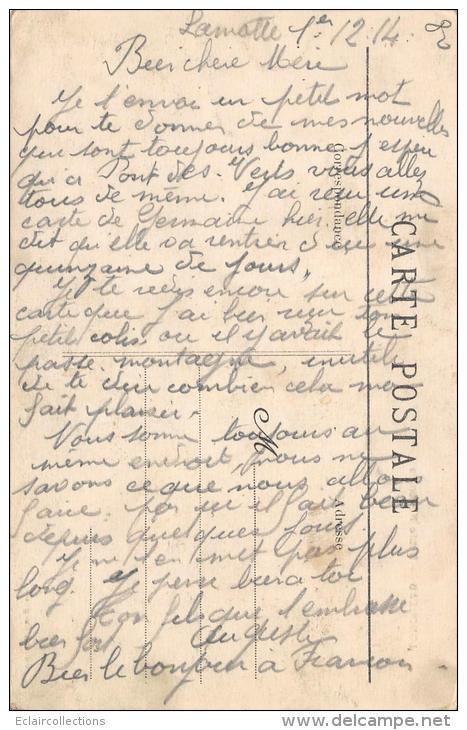 Lamotte 1er 12.14.
Bien chere Mère
Je t'envoi un petit mot
pour te donner de mes nouvelles
qui sont toujours bonne j'espere
qu'a Pont des. Verts vous allez
tous de même. J'ai reçu une
carte de Germaine hier elle me
dit qu'elle va rentrer d'ici une
quinzaine de jours,
Je te redis encore sur cette
carte que j'ai bien reçu ton
petit colis. ou il y avait le
passe. montagne, inutile
de te dire combien cela ma
fait plaisir.
Nous somme toujours au
même endroit, nous ne
savons ce que nous allons
faire. il fait beau
depuis quelques jours
Je ne t'en met pas plus
long. Je pense bien a toi
Ton fils que t'embrasse
bien fort. Auguste
Bien le bonjour à Francon
CARTE POSTALE
Correspondance
Adresse
M
Eclaircollections